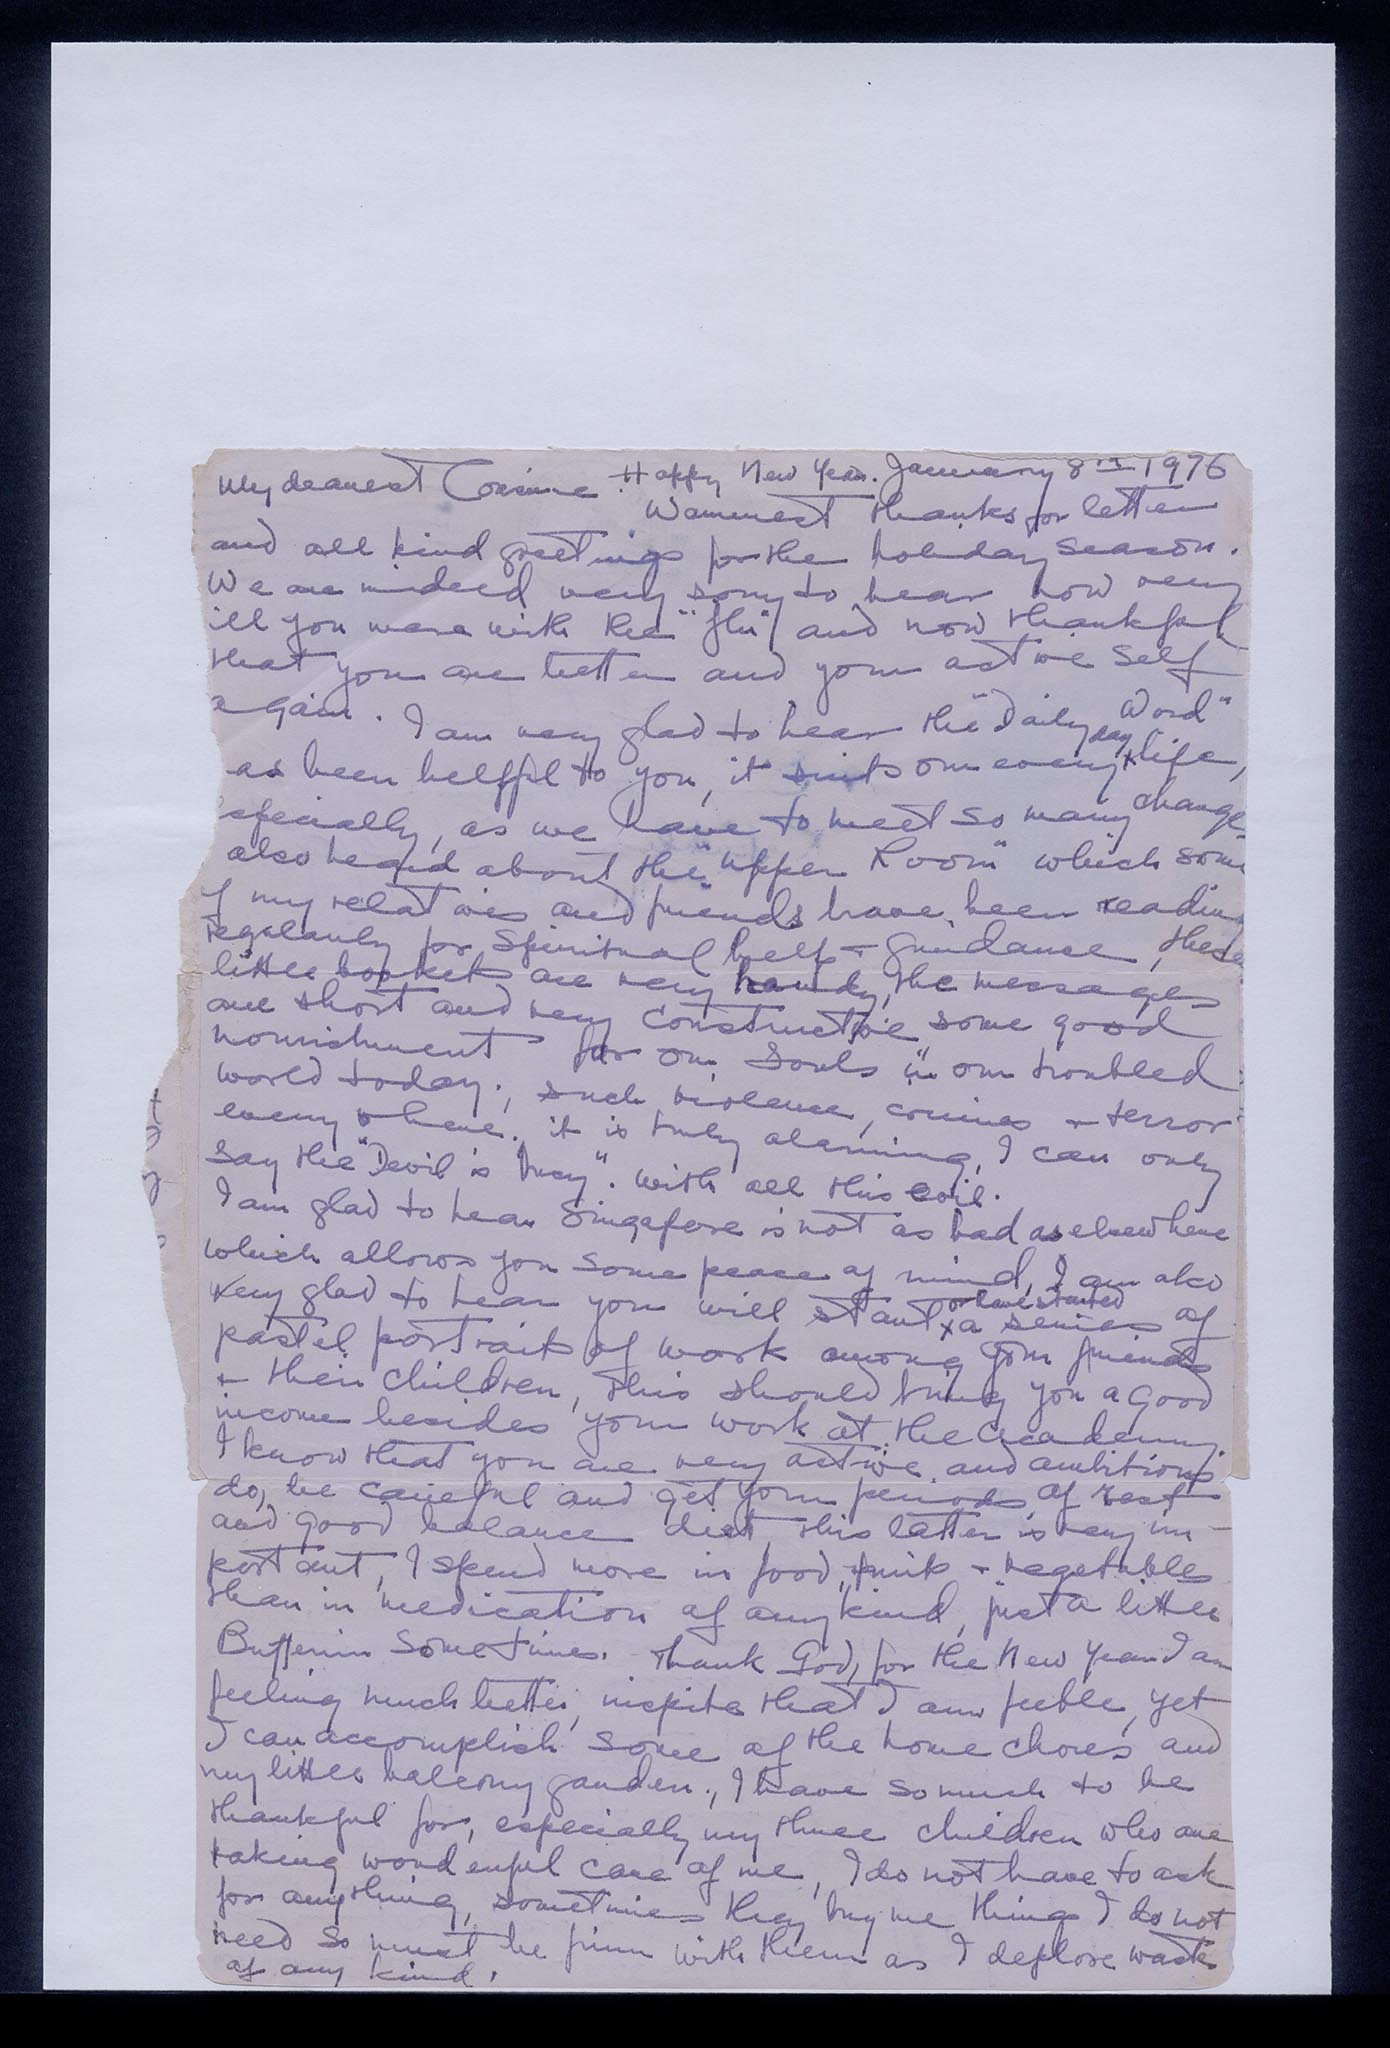 My dearest Corinne. Happy New Year. January 8th 1976
Warmest thanks for letter
and all kind greetings for the holiday season.
We are indeed very sorry to hear how very
ill you were with the "flu" and now thankful
that you are better and your active self
again. I am very glad to hear the "Daily Word"
as been helpful to you, it suits our every day life,
specially, as we have to meet so many change
also heard about the "Upper Room" which som
of my relatives and friends have been readin
regularly for Spiritual help + guidance, these
little booklets are very handy, the messages
are short and very constructive some good
nourishment for our Souls in our troubled
world today., such violence, crimes + terror
every where. it is truly alarming, I can only
say the "Devil is busy". with all this evil.
I am glad to hear Singapore is not as bad as elsewhere
which allows you some peace of mind, I am also
very glad to hear you will start x or have started a series of
pastel portraits of work among your friends
+ their children, this should bring you a good
income besides your work at the Academy.
I know that you are very active and ambitious
do, be careful and get your periods of rest
and good balance diet, this latter is very im-
portant, I spend more in food, fruit + vegetables
than in medication of any kind, just a little
Bufferin sometimes. Thank God, for the New Year I am
feeling much better, inspite that I am feeble, yet
I can accomplish some of the home chores and
my little balcony garden., I have so much to be
thankful for, especially my three children who are
taking wonderful care of me, I do not have to ask
for anything, sometimes they buy me things I do not
need so must be firm with them as I deplore waste
of any kind.